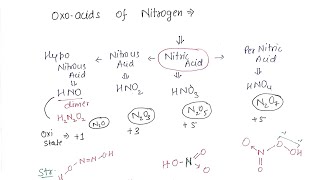 Oxo-acids of Nitrogen ⇒
Hypo Nitrous Acid ← Nitrous Acid ← Nitric Acid → Per Nitric Acid
HNO HNO₂ HNO₃ HNO₄
dimer
H₂N₂O₂ N₂O N₂O₃ N₂O₅ N₂O₇
Oxi state → +1 +3 +5 +5
Str
O N=N OH
H
HO-N O
O
O N O OH
O